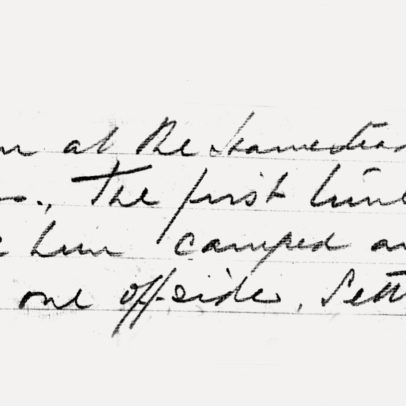 at the Homestead
The first time
him camped
one off-side. Sett